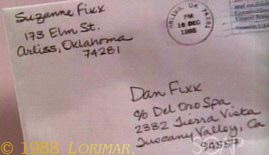 Suzanne Fixx
173 Elm St.
Arliss, Oklahoma
74281
PM
16 DEC
1988
Dan Fixx
% Del Oro Spa
2382 Tierra Vista
Tuscany Valley, Ca
94557
© 1988 LORIMAR,